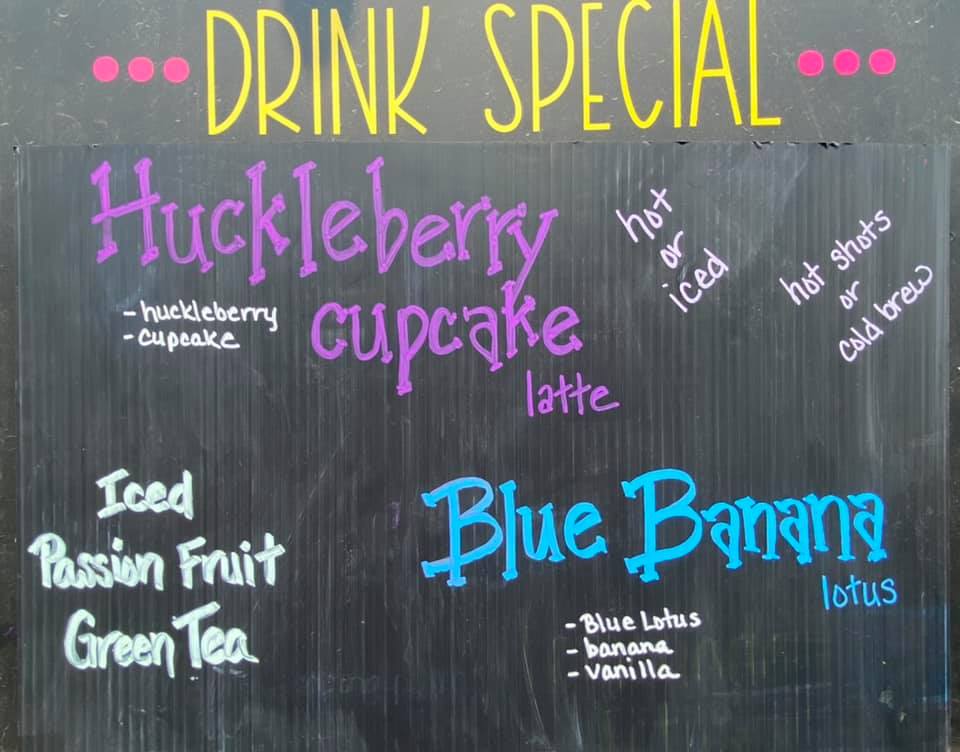 DRINK SPECIAL
Huckleberry
cupcake
latte
- huckleberry
- cupcake
hot
or
iced
hot shots
or
cold brew
Iced
Passion Fruit
Green Tea
Blue Banana
lotus
- Blue Lotus
- banana
- vanilla